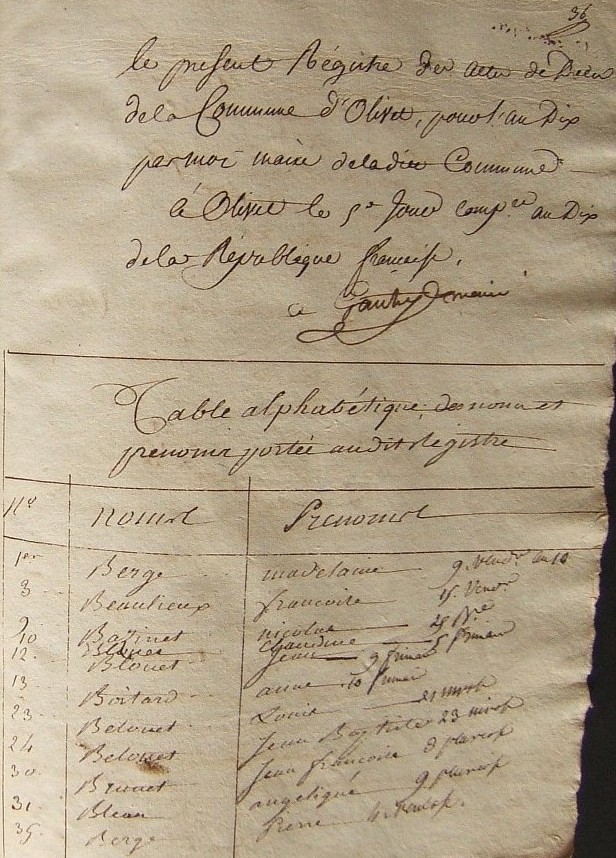 36
le present Régistre des actes de Décès
de la Commune d'Olivet, pour l'an Dix
par moi maire de ladite Commune
à Olivet le 5e Jour comp.re an Dix
de la République française,
Gauthier maire
Table alphabétique des noms et
prenoms portés audit Régistre
Nos Noms Prenoms
1er Berge madelaine 9 vendre an 10
8 Beaulieux francoise 15 Vendre
9 Bazinet nicolas
10 Claudine
12 Blouet Jean
13 Boitard anne 10 frimaire
23 Belouet Louis 21 nivose
24 Belouet Jean Baptiste 23 nivose
30 Brunet Jean francoise 8 pluviose
31 Bleau angelique 9 pluviose
35 Berge Pierre